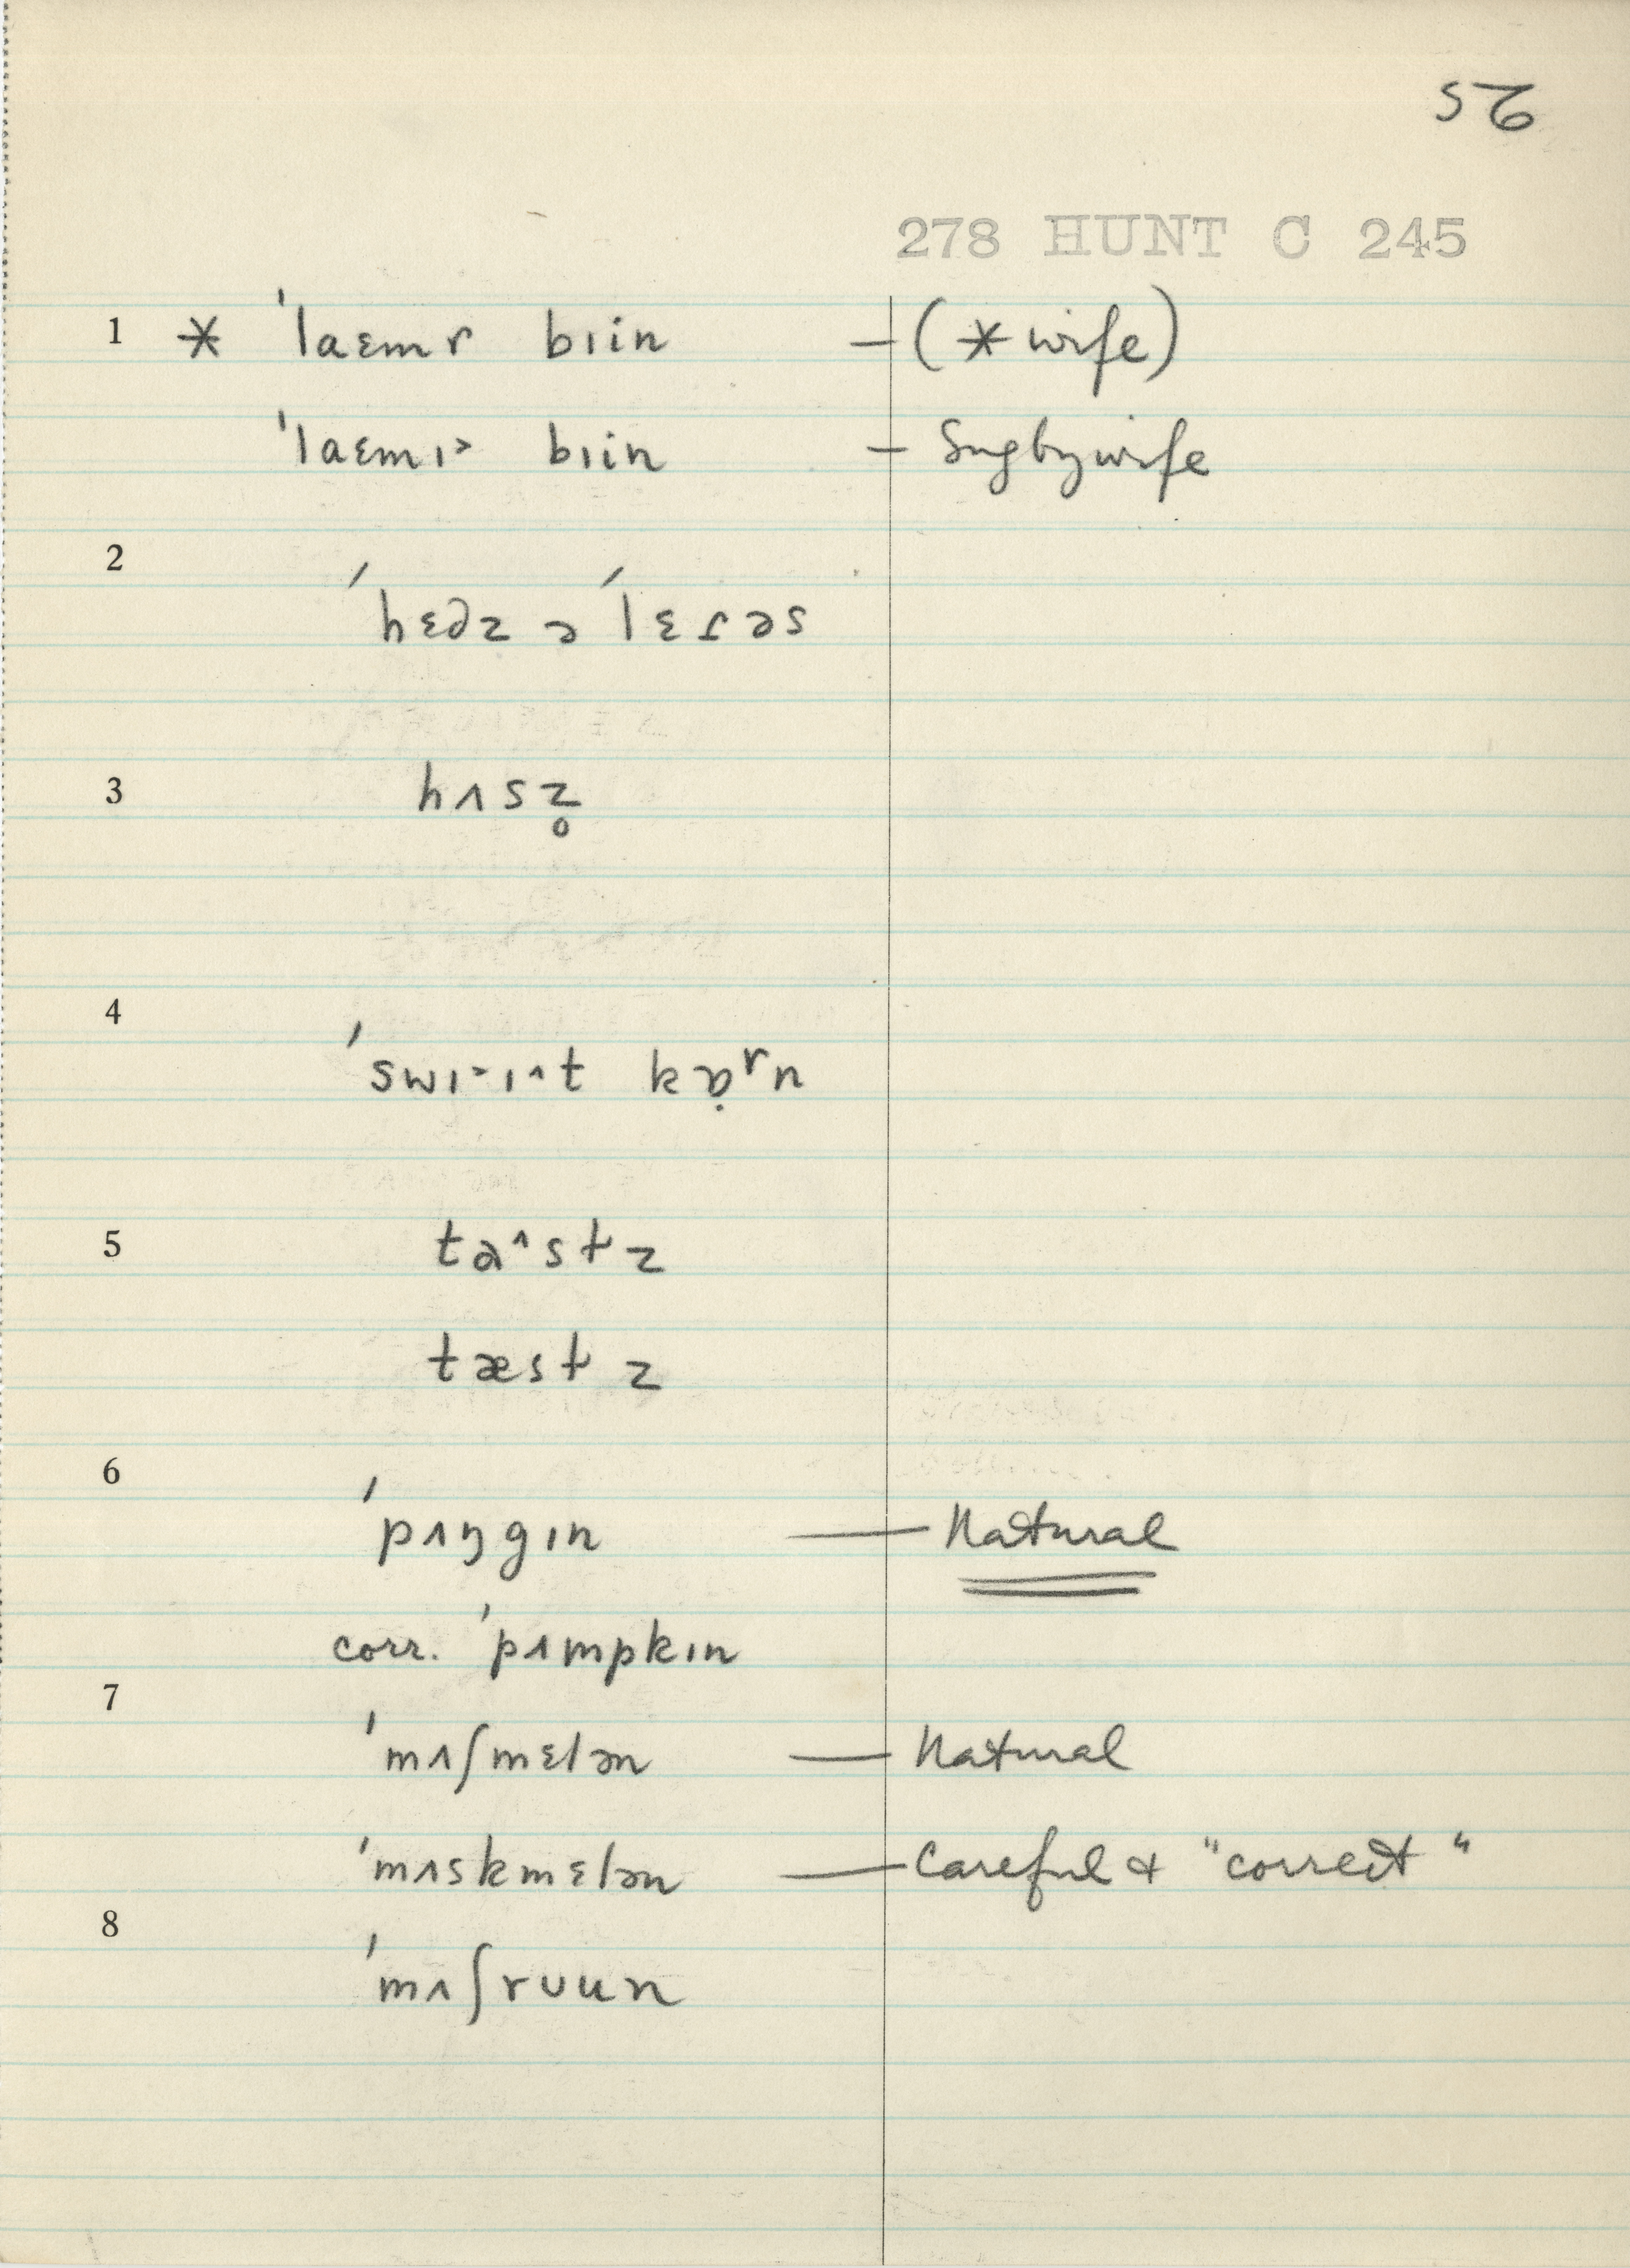 52
278 HUNT C 245
1 * ˈlaɛmɾ bɪin — (* wife)
ˈlaɛmɪ˃ bɪin — Sug by wife
2
ˈhɛdz ə ˈlɛɾəs
3 hʌsz̥
4
ˈswɪ˃ɪ^t kɒ̣ʳn
5 ta^stz
tæstz
6
ˈpʌŋgɪn — Natural
corr. ˈpʌmpkɪn
7
ˈmʌʃmɛlən — Natural
ˈmʌskmɛlən — Careful & "correct"
8
ˈmʌʃrᴜun